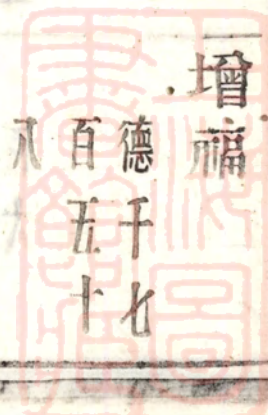 增福
德千七
百五十
八